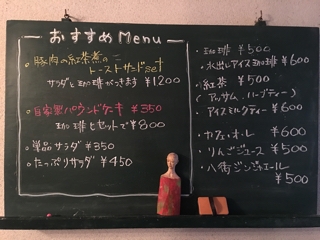 おすすめ Menu
・豚肉の紅茶煮の
トーストサンドset
サラダと珈琲がつきます ¥1200
・自家製パウンドケーキ ¥350
珈琲とセットで ¥800
・単品サラダ ¥350
・たっぷりサラダ ¥450
・珈琲 ¥500
・水出しアイス珈琲 ¥600
・紅茶 ¥500
(アッサム、ハーブティー)
・アイスミルクティー ¥600
・カフェ・オ・レ ¥600
・りんごジュース ¥500
・八街ジンジャエール
¥500